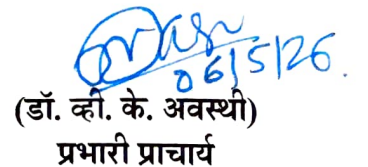 06/5/26.
(डॉ. व्ही. के. अवस्थी)
प्रभारी प्राचार्य